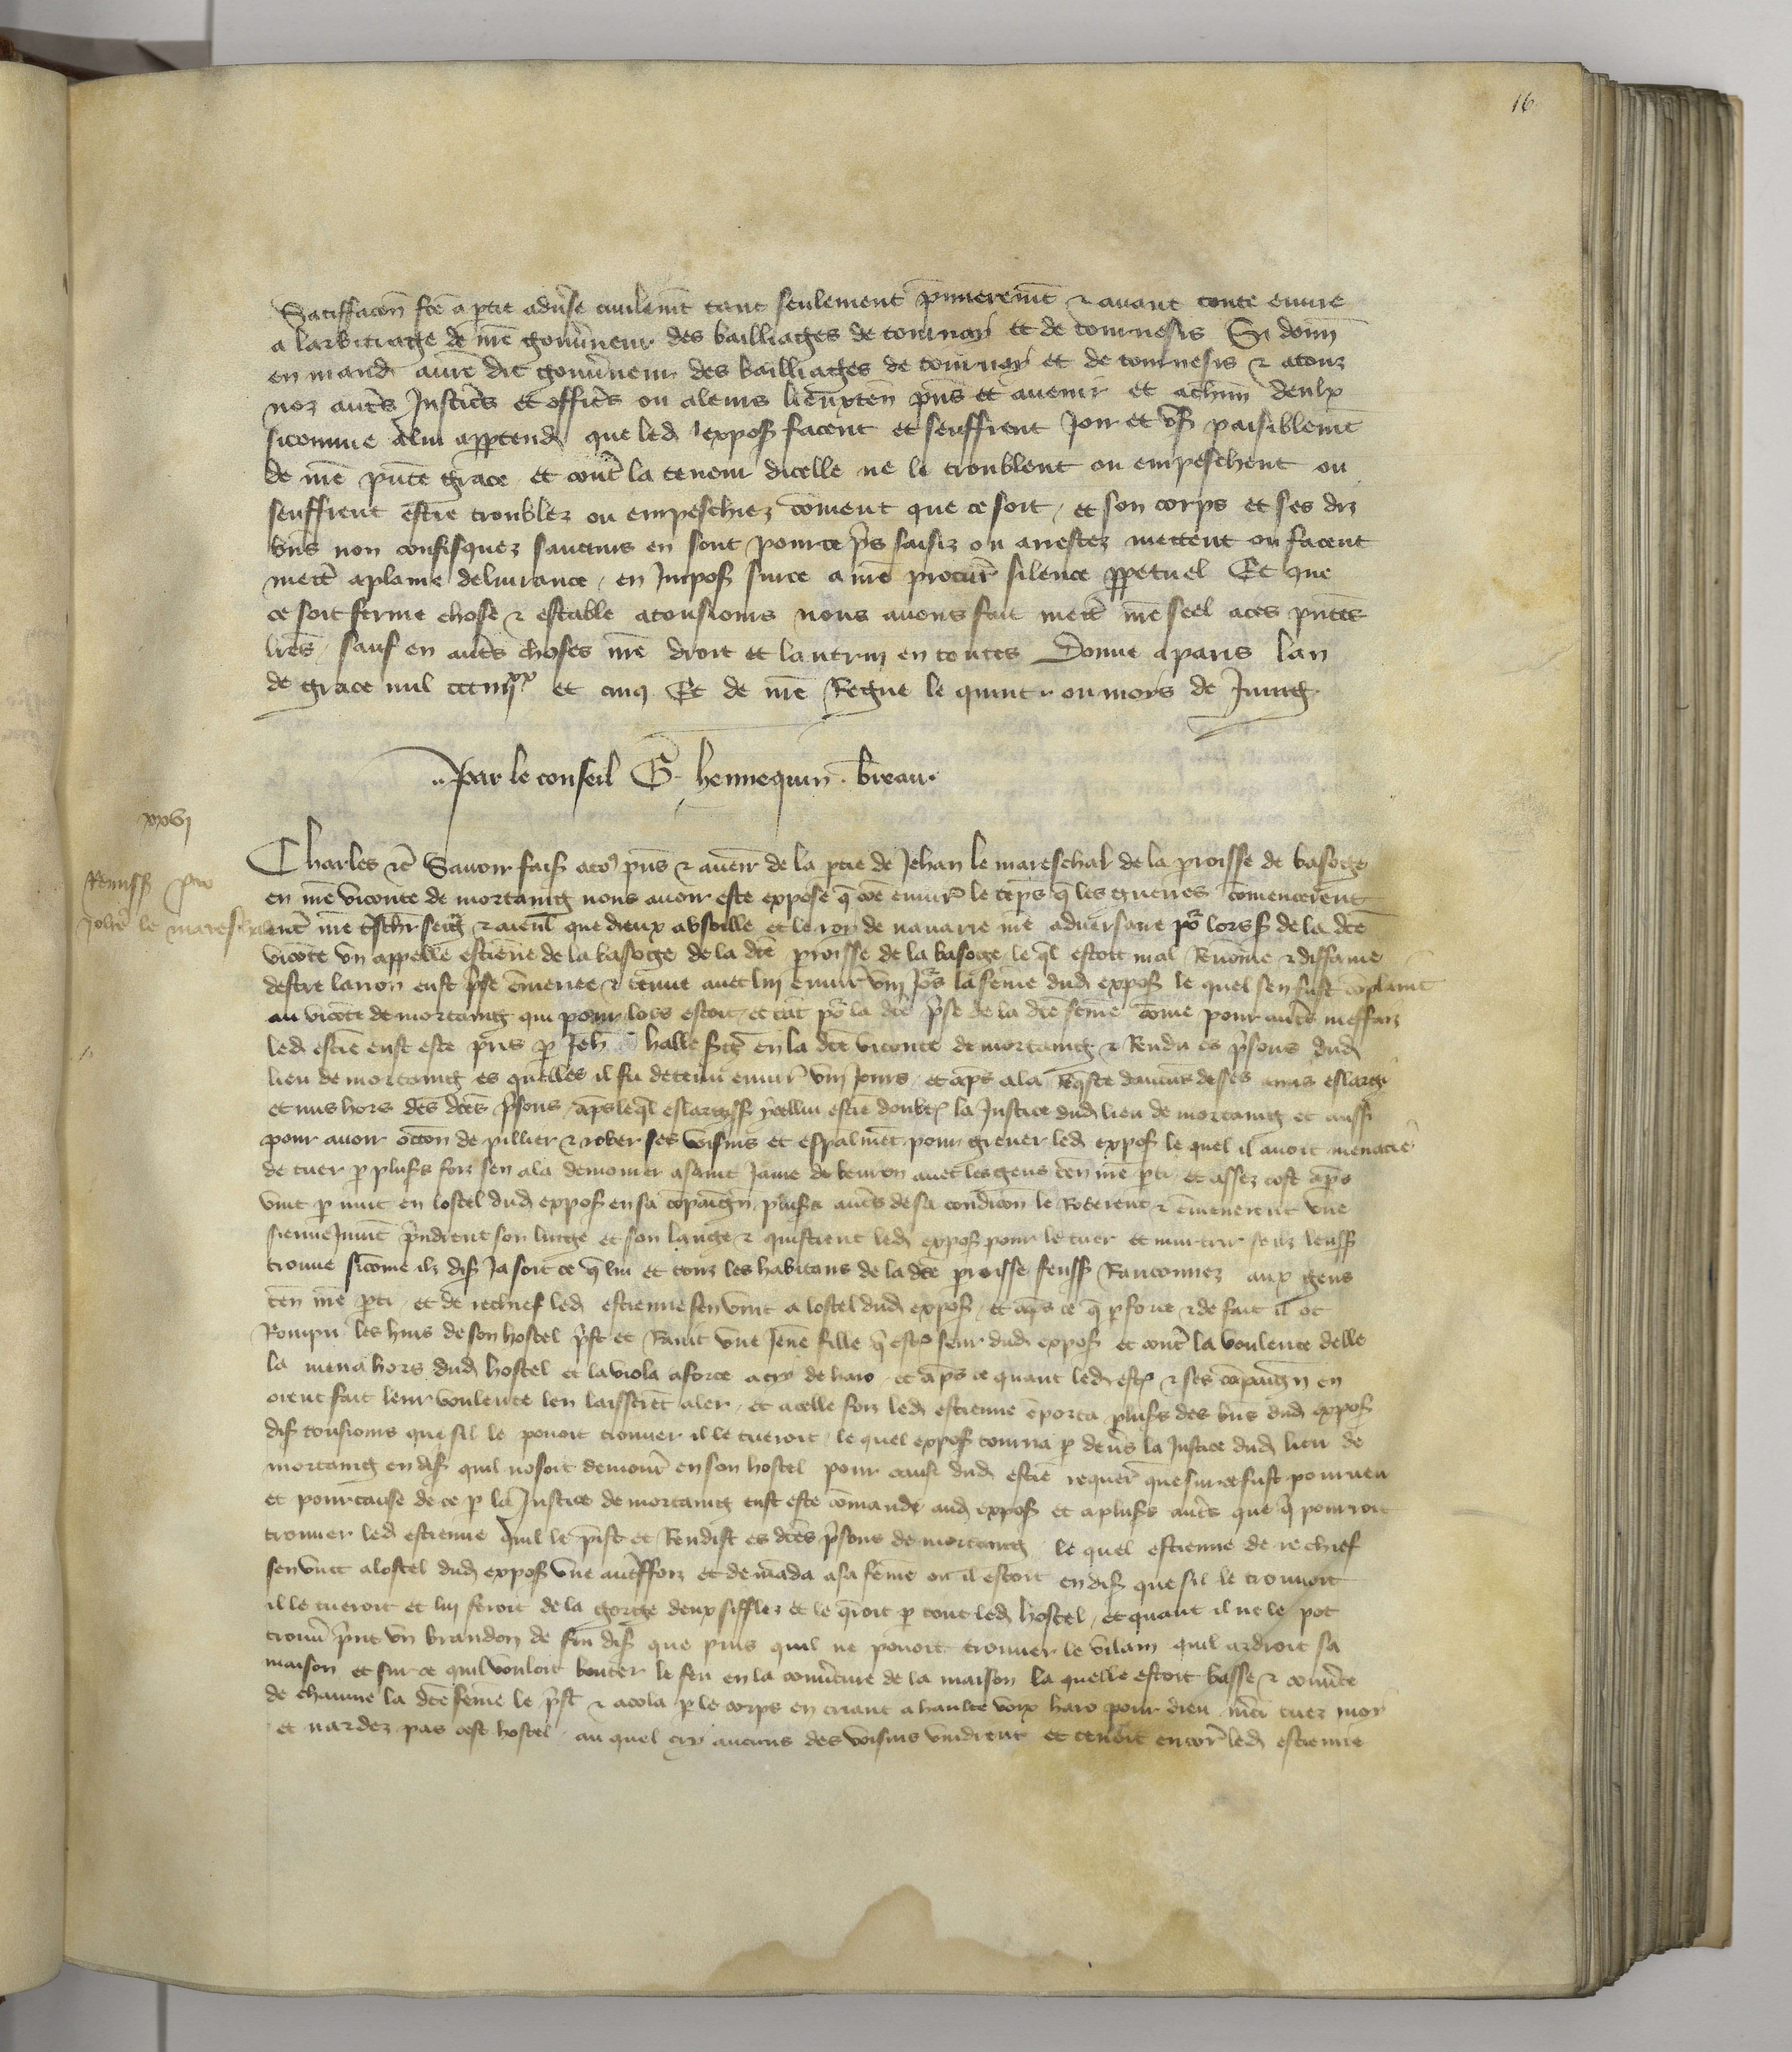 16
Satiffacōn fce a ptie adūse civilemt tant seulement p̄mieremt & avant toute euvre
a larbitrage de nr̄e gouv̄neur des bailliages de tournay et de tournesis Si donn̄
en mand̄ aud̄ dit gouv̄neur des bailliages de tournay et de tournesis & a touz
noz aut̄s Justic̄s et offic̄s ou a leurs lieuxten̄ pn̄s et avenir et a ch̄un deulx
si comme a lui app̄tend̄ que led̄ expoſ facent et seuffrent Joir et uſ paisiblemt
de nr̄e pn̄te grace et cont̄ la teneur dicelle ne le troublent ou empeschent ou
seuffrent estre troublez ou empeschiez com̄ent que ce soit et son corps et ses diz
bn̄s non confisquez saucuns en sont pource p̄s saisiz ou arrestez mettent ou facent
mett̄ a plaine delivrance en Impoſ sur ce a nr̄e procur̄ silence pp̄etuel Et que
ce soit ferme chose & estable a tousiours nous avons fait mett̄ nr̄e seel a ces pn̄tes
lr̄es sauf en aut̄s choses nr̄e droit et lautruy en toutes Donne a paris lan
de grace mil ccc iiijxx et cinq Et de nr̄e Regne le quint ou mois de Juing
Par le conseil G. hennequin . breau.
xxvj
Remiss̄ pro
Johē le mareschal
Charles &c̄ Savoir faiſ a toꝰ pn̄s & avenir de la ptie de Jehan le mareschal de la p̄oisse de basoge
en nr̄e viconte de mortaing nous avoir este expose q̄ com̄e envir̄ le temps q̄ les guerres com̄encerent
ent̄ nr̄e t̄sch̄r seigr̄ & aieul que dieux absoille et le roy de navarre nr̄e adversaire por lors ſ de la dc̄e
viconte un appelle estienne de la basoge de la dc̄e p̄oisse de la basoge le q̄l estoit mal Renom̄e & diffame
destre larron eust p̄se em̄enee & tenue avec lui envir̄ viij Jors la fem̄e dud̄ expoſ le quel sen fust complaint
au viconte de mortaing qui pour lors estoit et tāt por la dc̄e p̄se de la dc̄e fem̄e com̄e pour aut̄s meffaiz
led̄ estiēn eust este p̄ris p̄ Jeh̄ halle s̄gt̄ en la dc̄e viconte de mortaing & Rendu es p̄sons dud̄
lieu de mortaing es quelles il fu detenu envir̄ viij Jours et ap̄s a la req̄ste daucuns de ses amis eslargi
et mis hors des dc̄es p̄sons ap̄s le q̄l eslargiss̄ ycellui estiēn doubt̄ la Justice dud̄ lieu de mortaing et aussi
pour avoir occōn de pillier & rober ses voisins et esp̄almēt pour grever led̄ expoſ le quel il avoit menacie
de tuer p̄ plus̄s foiz sen ala demourer a saint Jame de beuron avec les gens ten̄ nr̄e pti et assez tost ap̄s
vint p̄ nuit en lostel dud̄ expoſ en sa compaign̄ plus̄s aut̄s de sa condicōn le Roberent & em̄enerent une
sienne Jumt̄ p̄ndrent son linge et son lange & quistrent led̄ expoſ pour le tuer et murtrir se ilz leuss̄
trouve si com̄e ilz diſ Ja soit ce q̄ lui et touz les habitans de la dc̄e p̄oisse feuss̄ Ranconnez aux gens
ten̄ nr̄e pti et de rechief led̄ estienne sen vint a lostel dud̄ expoſ et ap̄s ce q̄ p̄ force & de fait il ot
Rompu les huis de son hostel p̄st et Ravit une Jeune fille q̄ est̄ seur dud̄ expoſ et cont̄ la voulente delle
la mena hors dud̄ hostel et la viola a force a cry de haro et ap̄s ce quant led̄ est̄ & ses compaign̄ en
orent fait leur voulente len laisserēt aler et a celle foiz led̄ estienne emporta plus̄s des bn̄s dud̄ expoſ
diſ tousiours que sil le povoit trouver il le tueroit le quel expoſ tourna p̄ dev̄s la Justice dud̄ lieu de
mortaing en diſ quil nosoit demour̄ en son hostel pour cause dud̄ estiēn requer̄ que sur ce fust pourveu
et pour cause de ce p̄ la Justice de mortaing eust este com̄ande aud̄ expoſ et a plus̄s aut̄s que q̄ pourroit
trouver led̄ estienne quil le p̄ist et Rendist es dc̄es p̄sons de mortaing le quel estienne de rechief
sen vint a lostel dud̄ expoſ une aut̄ffoiz et demāda a sa fem̄e ou il estoit en diſ que sil le trouvoit
il le tueroit et lui feroit de la gorge deux sifflez et le q̄roit p̄ tout led̄ hostel et quant il ne le pot
trouv̄ p̄nt un brandon de feu diſ que puis quil ne povoit trouver le vilain quil ardroit sa
maison et sur ce quil vouloit bouter le feu en la couv̄ture de la maison la quelle estoit basse & couv̄te
de chaume la dc̄e fem̄e le p̄st & acola p̄ le corps en criant a haulte voix haro pour dieu m̄ci tuez moy
et nardez pas cest hostel au quel cry aucuns des voisins vindrent et tendit encor̄ led̄ estienne